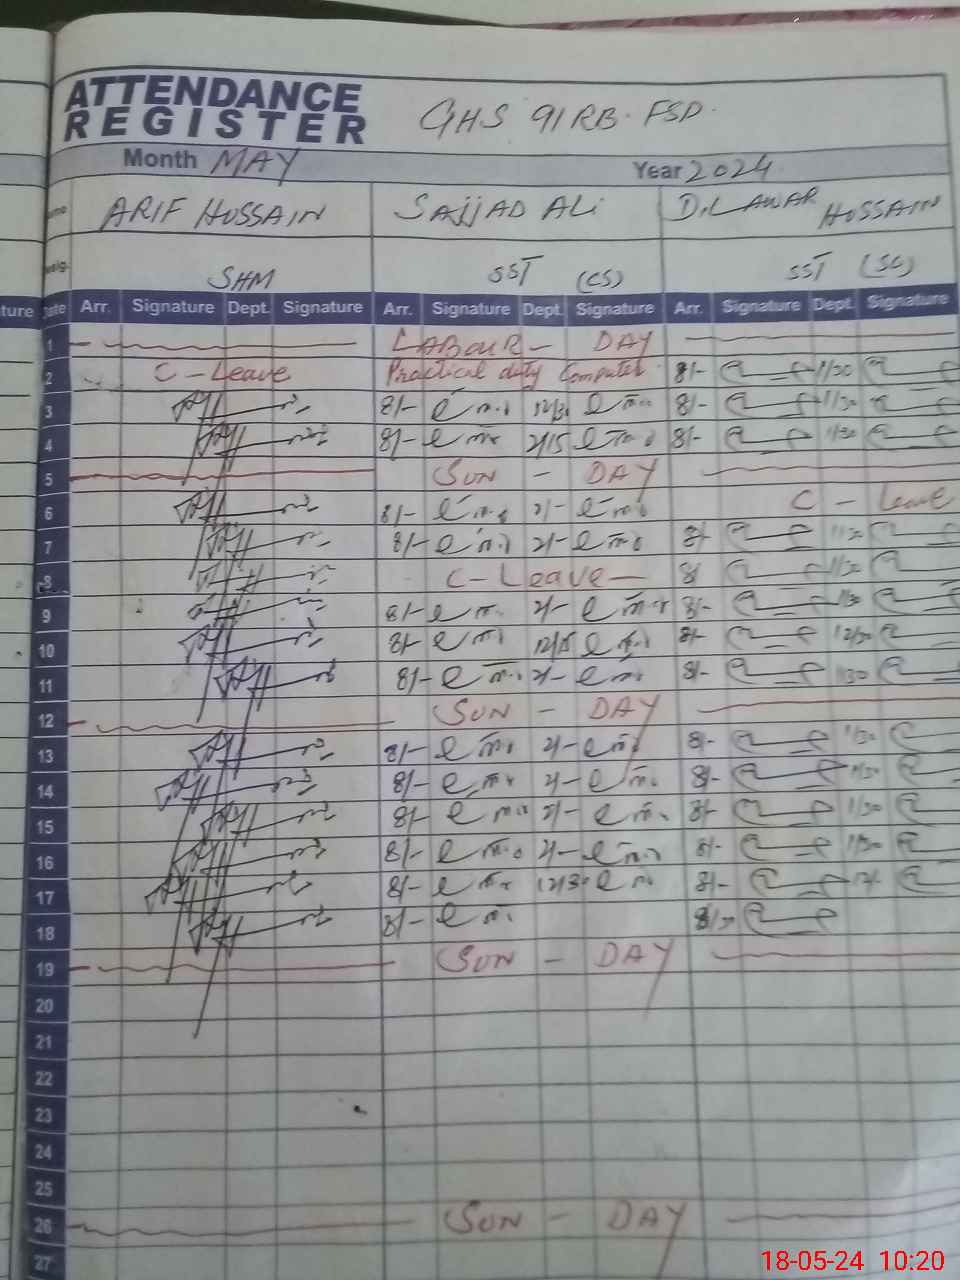 ATTENDANCE
REGISTER
GHS 91 RB. FSD.
Month MAY Year 2024
ARIF HUSSAIN SAJJAD ALi DILAWAR HUSSAIN
SHM SST (CS) SST (SC)
ture Date Arr. Signature Dept. Signature Arr. Signature Dept. Signature Arr. Signature Dept. Signature
1 LABOUR - DAY
2 C - Leave Practical duty Computer 8/- 1/30
3 8/- 12/30 8/- 1/30
4 8/- 2/15 8/- 1/30
5 SUN - DAY
6 8/- 2/- C - Leave
7 8/- 2/- 8/- 1/30
8 C - Leave - 8/ 1/30
9 8/- 2/- 8/- 1/30
10 8/- 12/15 8/- 12/30
11 8/- 2/- 8/- 1/30
12 SUN - DAY
13 8/- 2/- 8/- 1/30
14 8/- 2/- 8/- 1/30
15 8/- 2/- 8/- 1/30
16 8/- 2/- 8/- 1/30
17 8/- 12/30 8/-
18 8/-
19 SUN - DAY
20
21
22
23
24
25
26 SUN - DAY
27
18-05-24 10:20